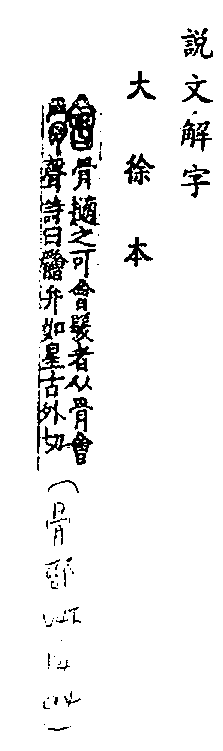 説文解字
大徐本
䯤 骨擿之可會髮者从骨會
聲詩曰䯤弁如星古外切
（骨部